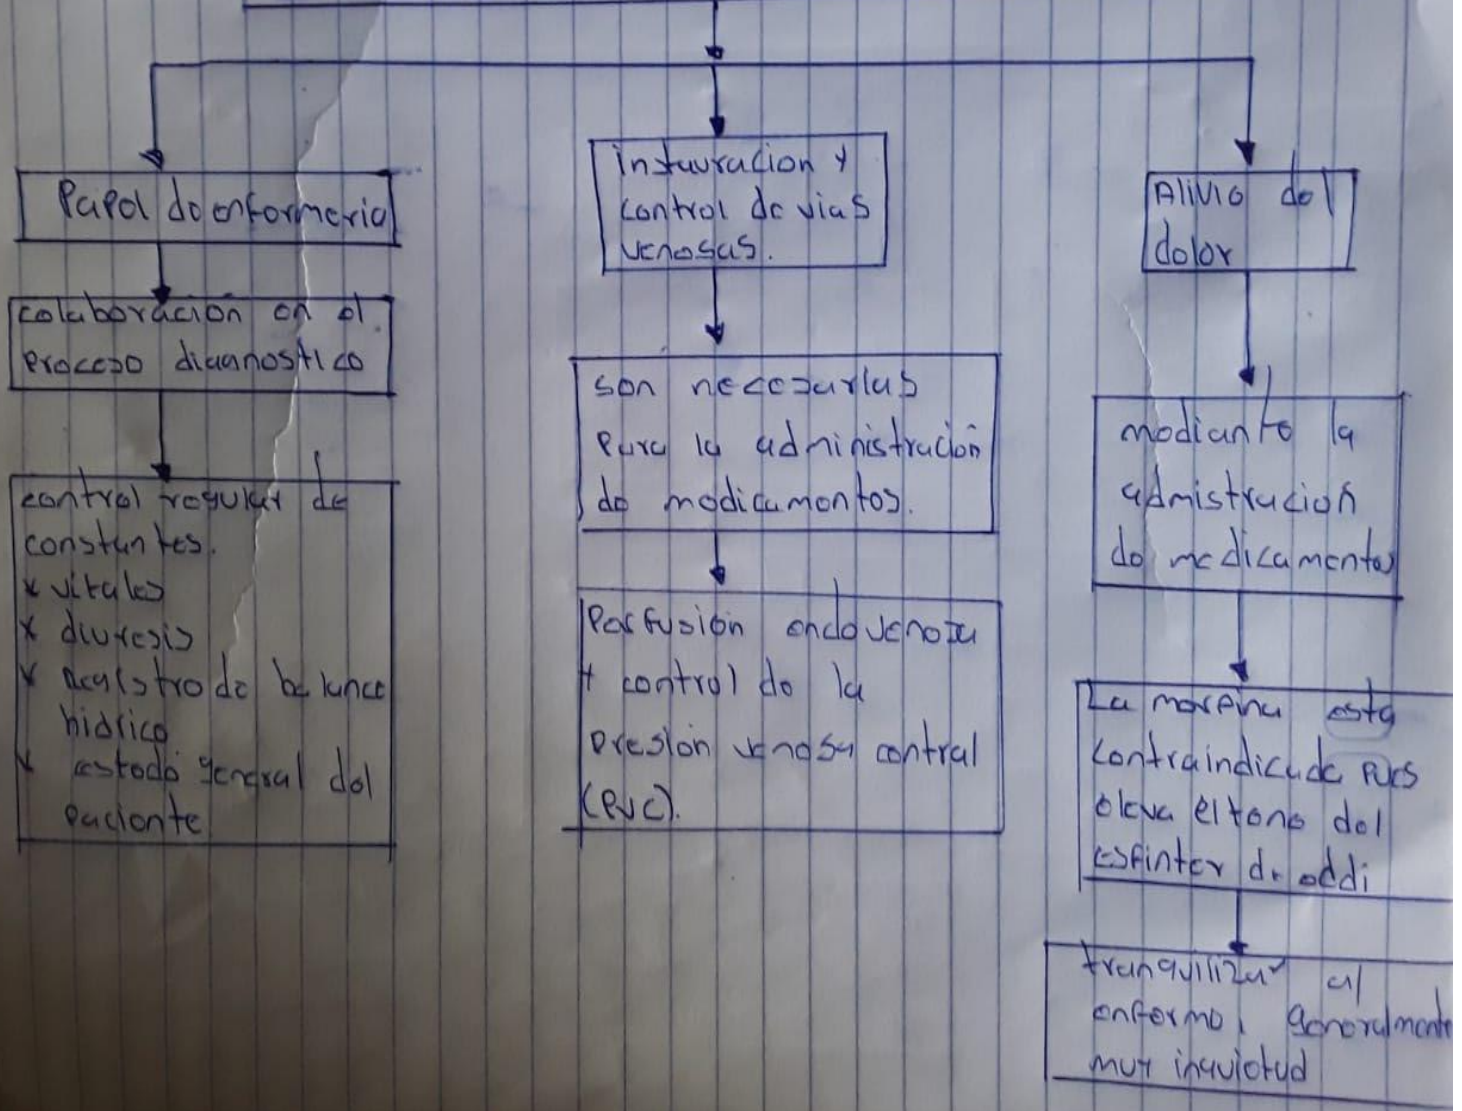 Papel de enfermeria
colaboración en el
proceso diagnostico
control regular de
constantes.
* vitales
* diuresis
* Registro de balance
hidrico
* estado general del
paciente
instauracion y
control de vias
venosas.
son necesarias
para la administración
de medicamentos.
Perfusión endovenosa
+ control de la
presión venosa central
(PVC).
Alivio del
dolor
mediante la
admistración
de medicamentos
La morfina esta
contraindicada pues
eleva el tono del
esfinter de oddi
tranquilizar al
enfermo, generalmente
muy inquietud